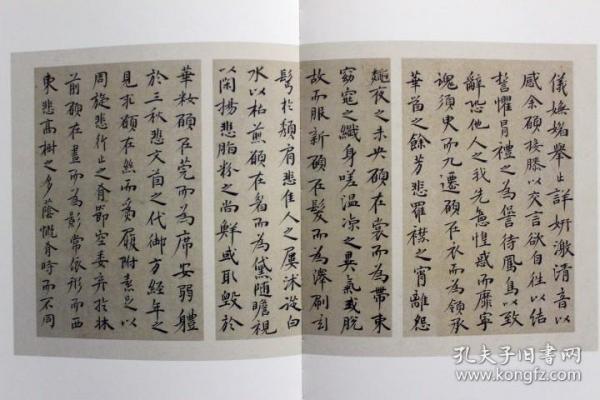 儀嫵媚舉止詳妍激清音以
感余願接膝以交言欲自往以結
誓懼冒禮之為諐待鳳鳥以致
辭恐他人之我先意惶惑而靡寧
魂須臾而九遷願在衣而為領承
華首之餘芳悲羅襟之宵離怨
穐夜之未央願在裳而為帶束
窈窕之纖身嗟溫凉之異氣或脫
故而服新願在髮而為澤刷玄
鬢於頹肩悲佳人之屢沐從白
水以枯煎願在眉而為黛隨瞻視
以閑揚悲脂粉之尚鮮或取毀於
華粧願在莞而為席安弱體
於三秋悲文茵之代御方經年之
見求願在絲而為履附素足以
周旋悲行止之有節空委弃於牀
前願在晝而為影常依形而西
東悲高樹之多蔭慨有時而不同
孔夫子旧书网
www.kongfz.com